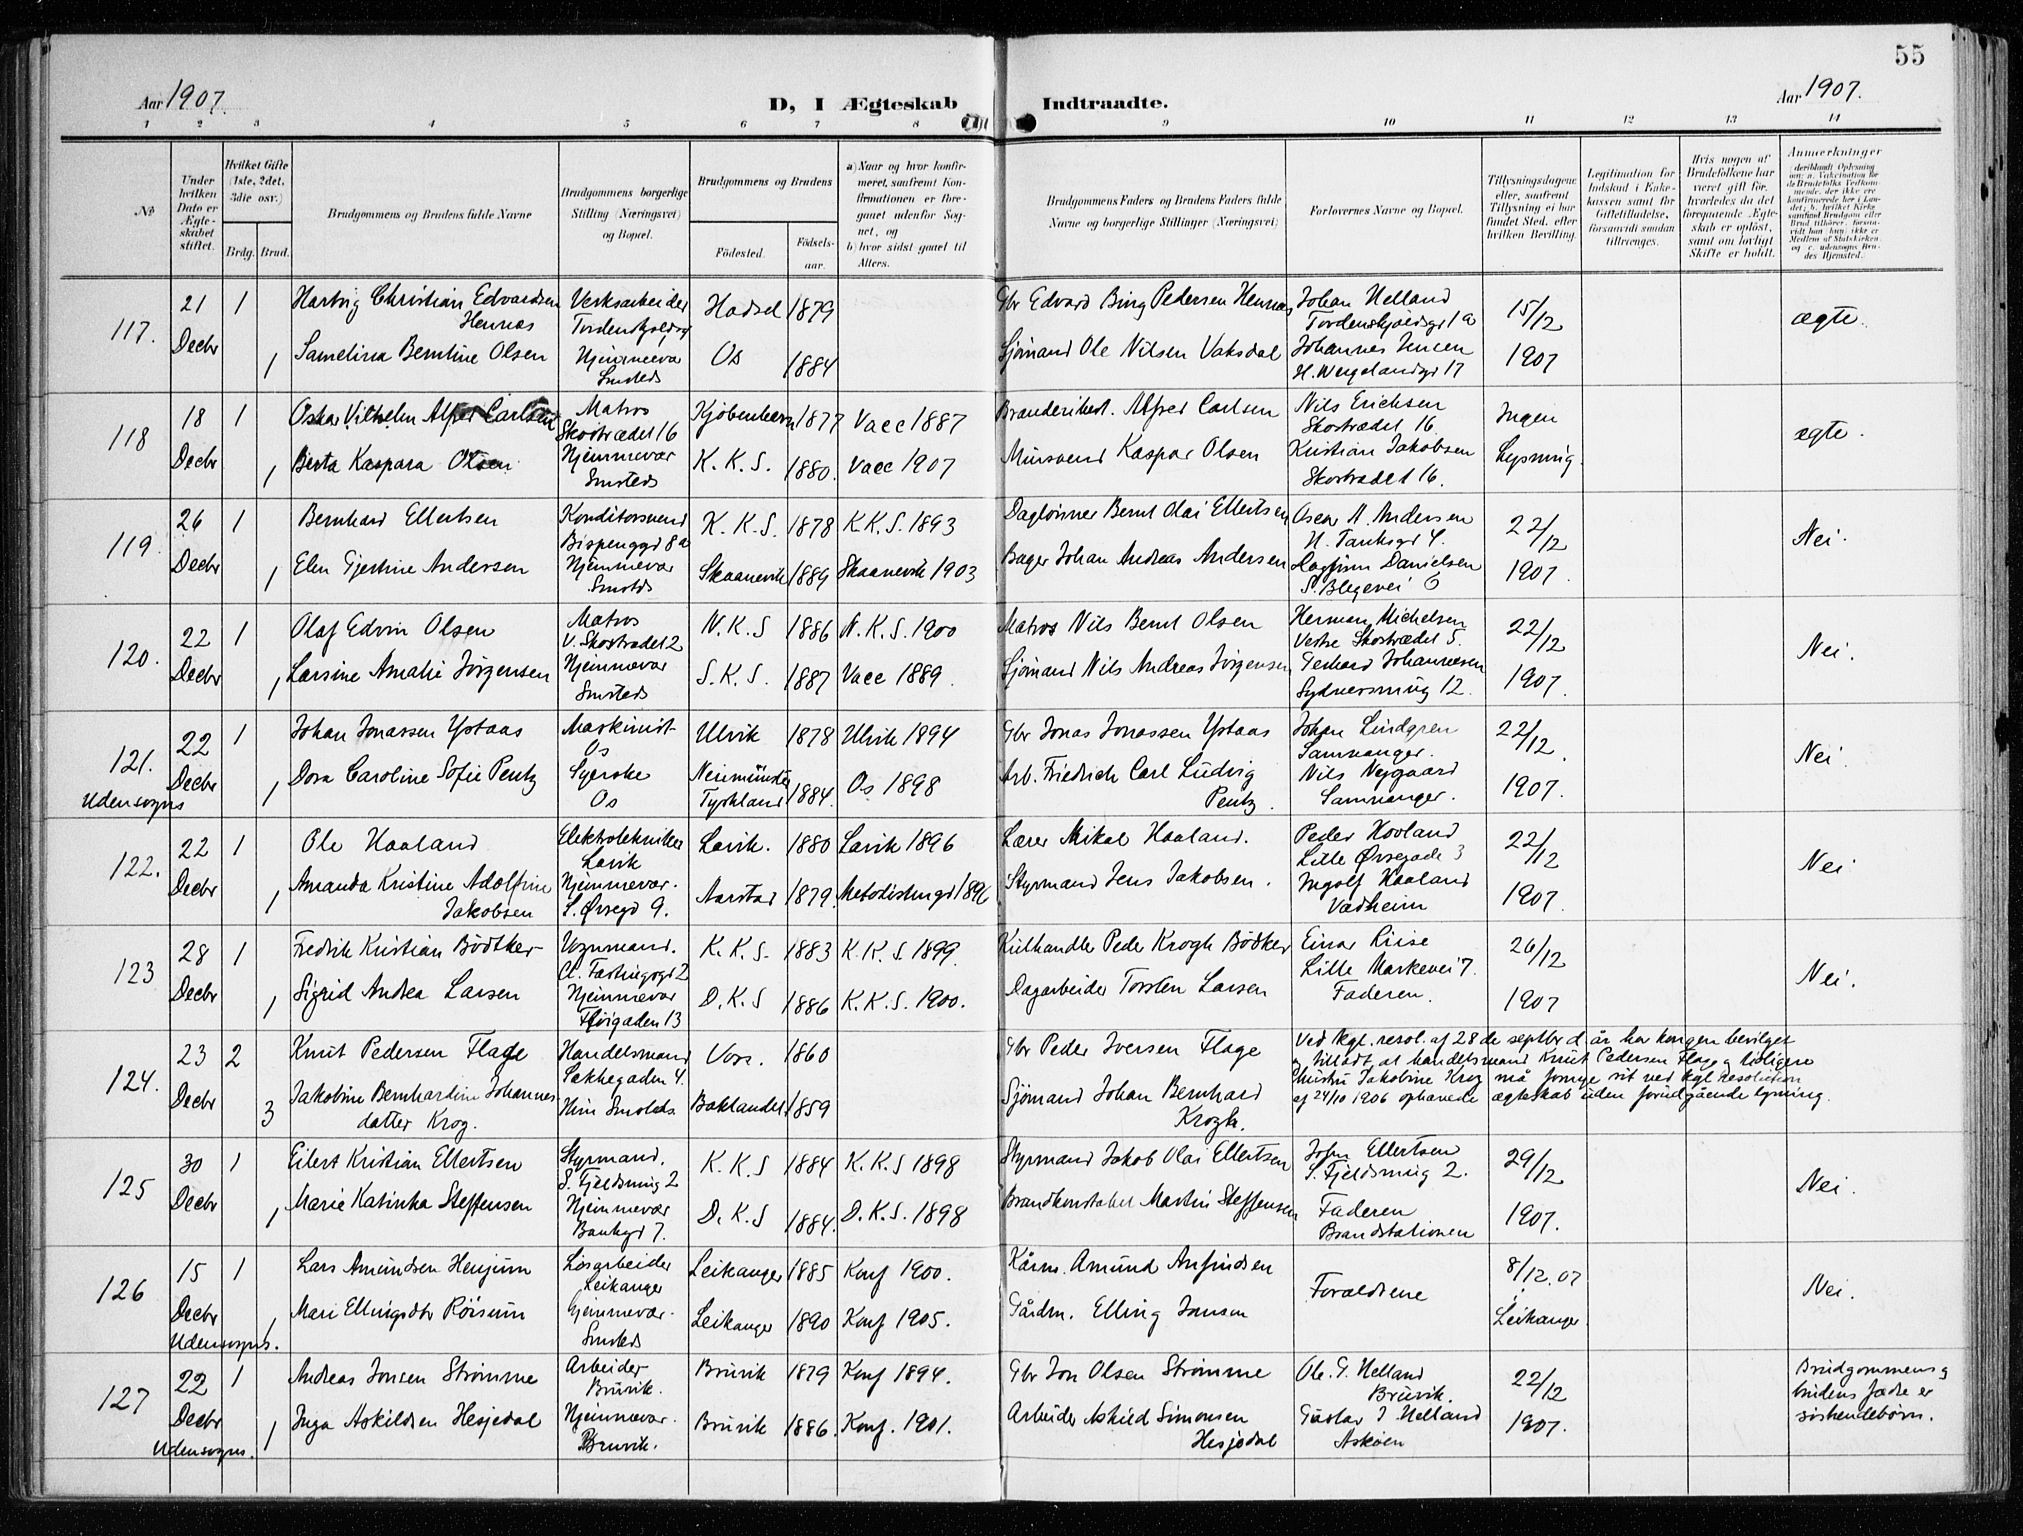 55
Aar 1907.
D, I Ægteskab Indtraadte.
Aar 1907.
1 2 3 4 5 6 7 8 9 10 11 12 13 14
No
Under hvilken Dato er Ægteskabet stiftet.
Hvilket Gifte (1ste, 2det, 3die osv.)
Brdg. Brud.
Brudgommens og Brudens fulde Navne
Brudgommens borgerlige Stilling (Næringsvei) og Bopæl.
Brudgommens og Brudens
Fødested.
Fødsels-aar.
a) Naar og hvor konfirmeret, samfremt Konfirmationen er foregaaet udenfor Sognet, og
b) hvor sidst gaaet til Alters.
Brudgommens Faders og Brudens Faders fulde Navne og borgerlige Stillinger (Næringsvei)
Forlovernes Navne og Bopæl.
Tillysningsdagene eller, saafremt Tillysning ei har fundet Sted, efter hvilken Bevilling.
Legitimation for Indskud i Enkekassen samt for Giftetilladelse, forsaavidt saadan tiltrænges.
Hvis nogen af Brudefolkene har været gift før, hvorledes da det foregaaende Ægteskab er opløst, samt om lovligt Skifte er holdt.
Anmerkninger
117. 21 Decbr 1 Hartvig Christian Edvardsen Hennes Verksarbeider Hadsel 1879 Gbr Edvard Bing Pedersen Hennes Johan Helland 15/12 ægte.
1 Samelina Berntine Olsen Hjemmevær Smsteds Os 1884 Sjømand Ole Nilsen Vaksdal Johannes Jensen H. Wergelandsgt 17 1907
118 18 Decbr 1 Oskar Vilhelm Alfred Carlsen Matros Skostrædet 16 Kjøbenhavn 1877 Vacc 1887 Alfred Carlsen Nils Erichsen Skostrædet 16. Ingen ægte.
1 Berta Kaspara Olsen Hjemmevær Smsteds K. K. S. 1880. Vacc 1907 Mursvend Kaspar Olsen Kristian Jakobsen Skostrædet 16. Lysning.
119. 26 Decbr 1 Bernhard Ellertsen Konditorsvend K. K. S. 1878 K.K.S. 1893 Daglønner Bernt Olai Ellertsen Oscar A. Andersen H. Tanksgt 4. 22/12 Nei.
1 Elen Gjertine Andersen Hjemmevær Smstds Skaanevik 1889 Skaanevik 1903 Bager Johan Andreas Andersen Danielsen S. Blegevei 6 1907.
120. 22 Decbr 1 Olaf Edvin Olsen Matros V. Skostrædet 2 N. K. S 1886 N. K. S. 1900 Matros Nils Bernt Olsen Herman Michelsen Vestre Skostrædet 5. 22/12 Nei.
1 Larsine Amalie Jörgensen Hjemmevær Smsteds S. K. S. 1887 Vacc 1889. Sjømand Nils Andreas Jörgensen Gerhard Johannesen Sydnessmug 12. 1907.
121. 22 Decbr 1 Johan Jonassen Ystaas Maskinist Os Ulvik 1878 Ulvik 1894 Gbr Jonas Jonassen Ystaas Johan Lindgren Samnanger. 22/12 Nei.
Udensogns 1 Dora Caroline Sofie Pentz Syerske Os Neumünster Tyskland 1884. Os 1898 Arb. Friedrich Carl Ludvig Pentz. Nils Nygaard Samnanger. 1907.
122. 22 Decbr 1 Ole Haaland Elektrotekniker Lavik Lavik. 1880 Lavik 1896 Lærer Mikal Haaland. Peder Hovland Lille Øvregade 3 22/12 Nei
1 Amanda Kristine Adolfine Jakobsen Hjemmevær. L. Øvregd 9. Aarstad 1879. 1896 Styrmand Jens Jakobsen. Ingolf Haaland Vadheim 1907.
123 28 Decbr 1 Fredrik Kristian Bödtker Vognmand. K. K. S. 1883 K. K. S. 1899. Kulhandler Peder Krogh Bödker Einar Riise Lille Markevei 7. 26/12 Nei.
1 Sigrid Andrea Larsen Hjemmevær Fløigaden 13 D. K. S 1886 K. K. S. 1900. Dagarbeider Torsten Larsen Faderen. 1907
124. 23 Decbr 2 Knut Pedersen Flage Handelsmand Sækkegaden 4. Voss. 1860 Gbr Peder Iversen Flage Ved kgl. resol. af 28de septbr d. år har kongen bevilget
og tilladt, at handelsmand Knut Pedersen Flage og tidligere
3 Jakobine Bernhardine Johannesdatter Krog. Smstds. Baklandet 1859 Sjømand Johan Bernhard Krogh. Jakobine Krog må fornye sit ved kgl resolution
af 24/10 1906 ophævede ægteskab uden forudgående lysning.
125 30 Decbr 1 Eilert Kristian Ellertsen Styrmand. S. Fjeldsmug 2 K. K. S 1884 K. K. S 1898 Styrmand Jakob Olai Ellertsen John Ellertsen S. Fjeldsmug 2. 29/12 Nei.
1 Marie Katinka Steffensen Hjemmevær Bankgt 7. D. K. S 1884. D. K. S. 1898 Brandkonstabel Martin Steffensen Faderen Brandstationen 1907.
126 15 Decbr 1 Lars Amundsen Henjum Løsarbeider Leikanger Leikanger 1885 Konf 1900. Kårm. Amund Anfindsen Forældrene 8/12.07 Nei.
Udensogns. 1 Mari Ellingsdtr Röisum Hjemmevær. Smsteds Leikanger 1890 Konf 1905. Gårdm. Elling Jonsen Leikanger
127 22 Decbr 1 Andreas Jonsen Strömme Arbeider Bruvik. Bruvik 1879 Konf 1894. Gbr Jon Olsen Strömme Ole. G. Helland Bruvik. 22/12 Brudgommens og brudens fædre er söskendebörn.
Udensogns. 1 Inga Askildsen Hesjedal Hjemmevær. Bruvik. Bruvik 1886. Konf. 1901. Arbeider Askild Simonsen Hesjedal Gustav J Helland Askøen 1907.